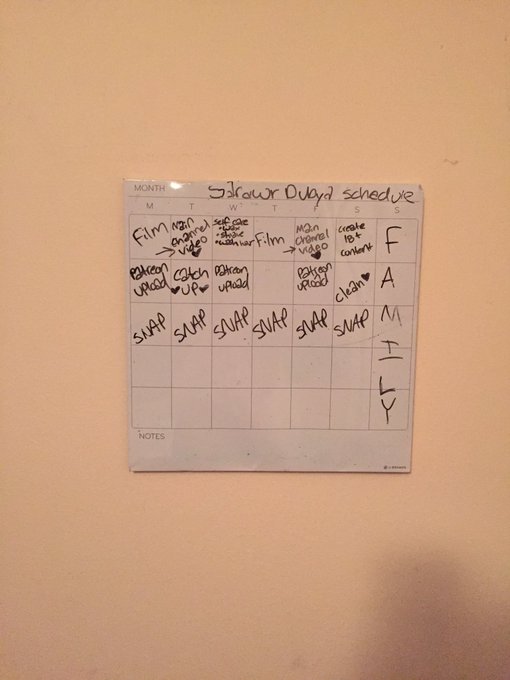 MONTH schedule
M T W T F S S
Film
Main
channel
video
self care
• wax
• shave
Film
Main
channel
video
create
18+
content
F
Patreon
upload
Catch
UP
Patreon
upload
Patreon
upload
clean
A
SNAP SNAP SNAP SNAP SNAP SNAP M
I
L
Y
NOTES